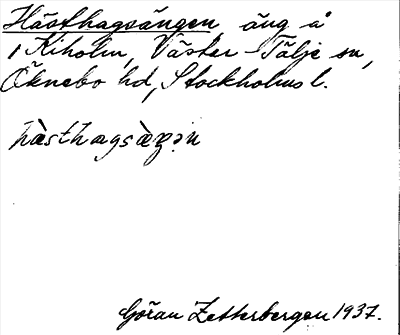 Hästhagsängen, äng å
1 Kiholm, Väster-Tälje sn,
Öknebo hd, Stockholms l.
Göran Zetterbergen 1937.